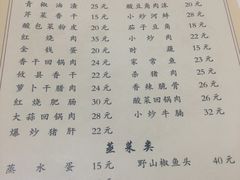 青椒油渣 25元
芹菜香干 15元
酸包菜粉皮 20元
红烧肉 35元
金钱蛋 20元
香干回锅肉 22元
攸县香干 22元
萝卜干腊肉 24元
红烧肥肠 30元
大蒜回锅肉 28元
爆炒猪肝 22元
酸豆角肉沫 20元
小炒河蚌 28元
茄子豆角 18元
小炒肉 22元
时蔬 15元
家常鱼 25元
杀猪肉 25元
香辣脆骨 26元
酸菜回锅肉 26元
小炒牛腩 32元
蒸菜类
蒸水蛋 15元
野山椒鱼头 40元